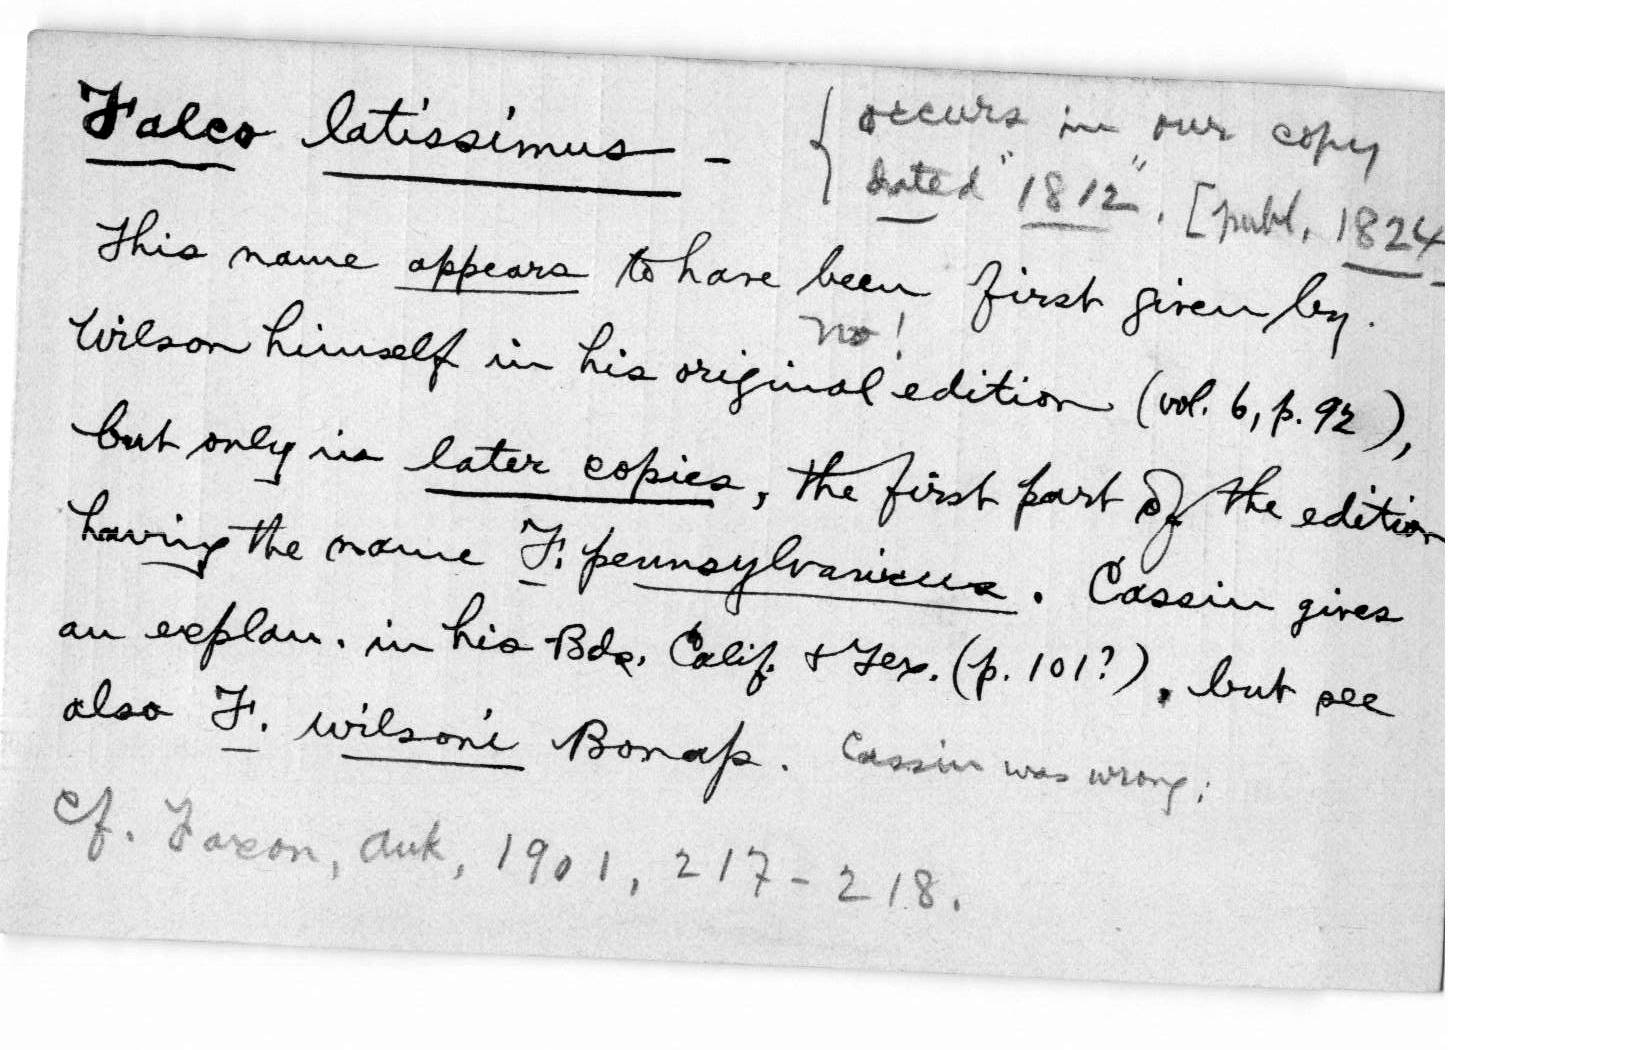 Falco latissimus – { occurs in our copy
dated "1812". [publ. 1824
This name appears to have been first given by
No!
Wilson himself in his original edition (vol. 6, p. 92),
but only in later copies, the first part of the edition
having the name F. pennsylvanicus. Cassin gives
an explan. in his Bds. Calif. & Tex. (p. 101?), but see
also F. wilsoni Bonap. Cassin was wrong;
cf. Faxon, Auk, 1901, 217-218.